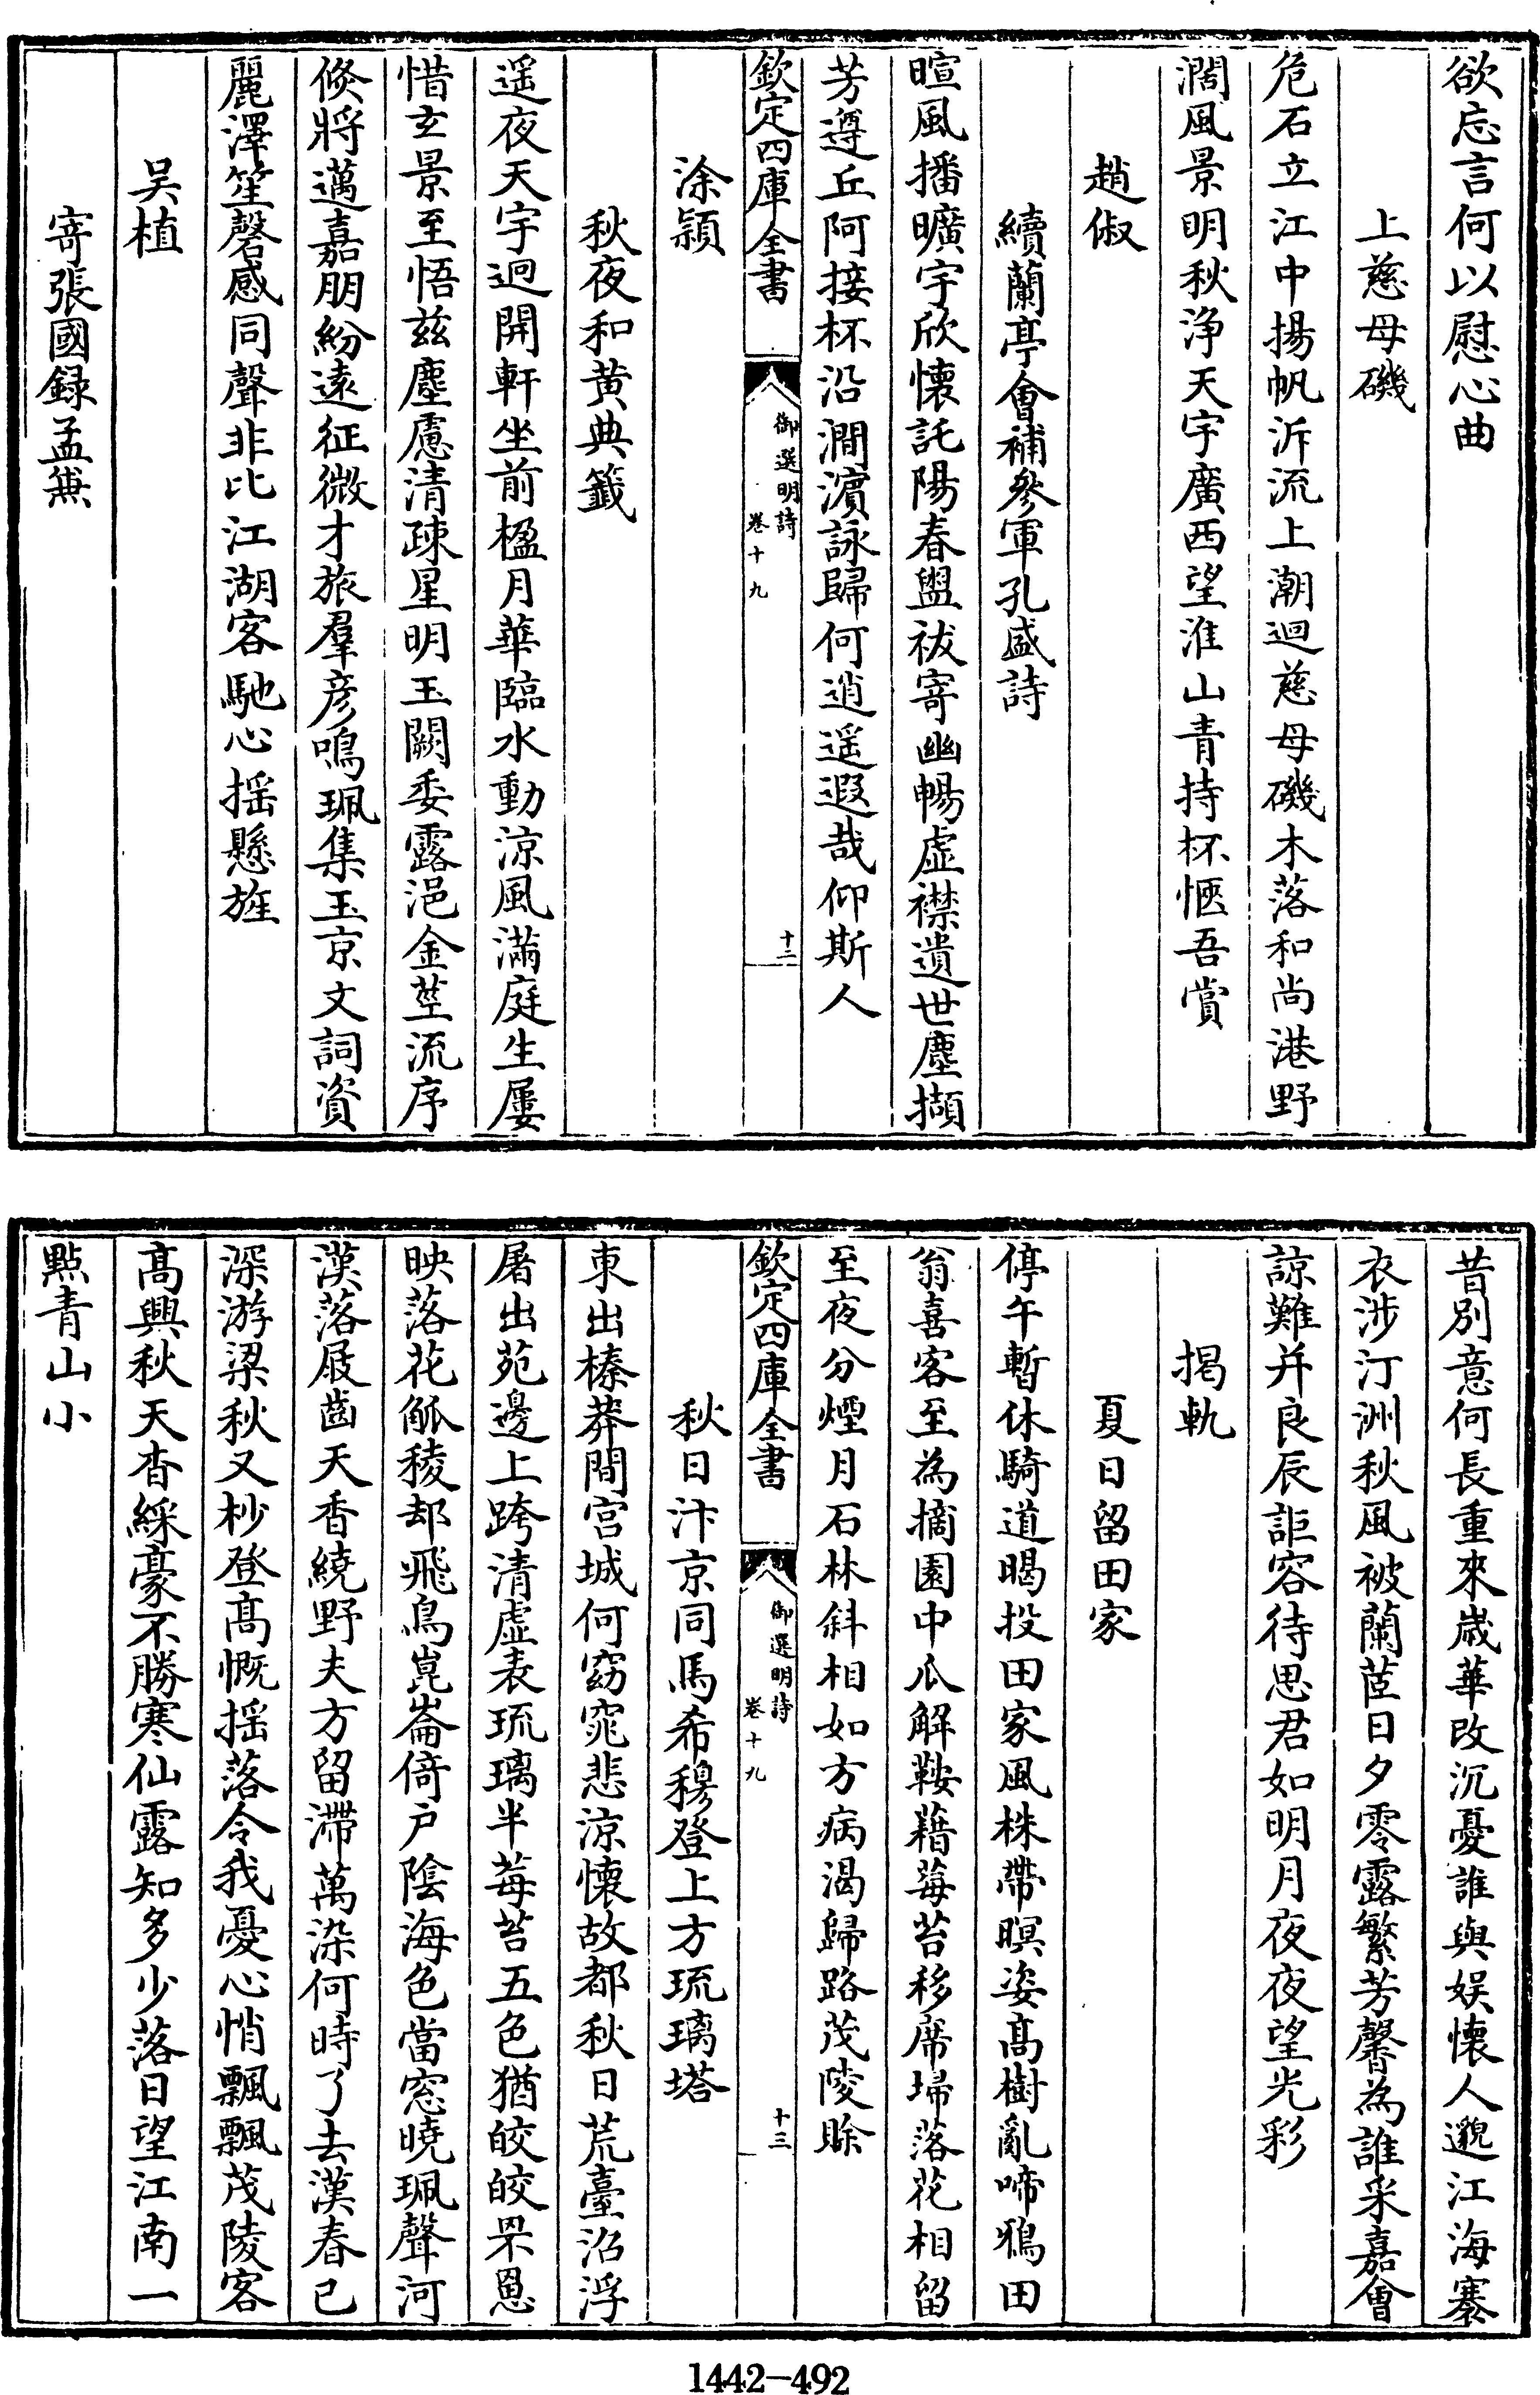 欲忘言何以慰心曲
上慈母磯
危石立江中揚帆泝流上潮迴慈母磯木落和尚港野
濶風景明秋浄天宇廣西望淮山青持杯愜吾賞
趙俶
續蘭亭會補參軍孔盛詩
暄風播曠宇欣懷託陽春盥祓寄幽暢虚襟遺世塵擷
芳遵丘阿接杯沿澗濵詠歸何逍遥遐哉仰斯人
欽定四庫全書
御選明詩
卷十九
十二
涂頴
秋夜和黄典籤
遥夜天宇迥開軒坐前楹月華臨水動涼風滿庭生屢
惜玄景至悟兹塵慮清疎星明玉闕委露浥金莖流序
倐將邁嘉朋紛遠征微才旅羣彦鳴珮集玉京文詞資
麗澤笙磬感同聲非比江湖客馳心揺懸旌
吴植
寄張國録孟兼
昔別意何長重來嵗華改沉憂誰與娱懷人邈江海褰
衣涉汀洲秋風被蘭茝日夕零露繁芳馨為誰采嘉會
諒難并良辰詎容待思君如明月夜夜望光彩
掲軌
夏日留田家
停午暫休騎道暍投田家風株帶暝姿髙樹亂啼鴉田
翁喜客至為摘園中瓜解鞍藉莓苔移席埽落花相留
至夜分煙月石林斜相如方病渴歸路茂陵賖
欽定四庫全書
御選明詩
卷十九
十三
秋日汴京同馬希穆登上方琉璃塔
東出榛莽間宫城何窈窕悲涼懷故都秋日荒臺沼浮
屠出苑邊上跨清虚表琉璃半莓苔五色猶皎皎罘罳
映落花觚稜却飛鳥崑崙倚戸陰海色當窓曉珮聲河
漢落屐齒天香繞野夫方留滯萬染何時了去漢春已
深游梁秋又杪登髙慨揺落令我憂心悄飄飄茂陵客
髙興秋天杳綵豪不勝寒仙露知多少落日望江南一
點青山小
1442-492